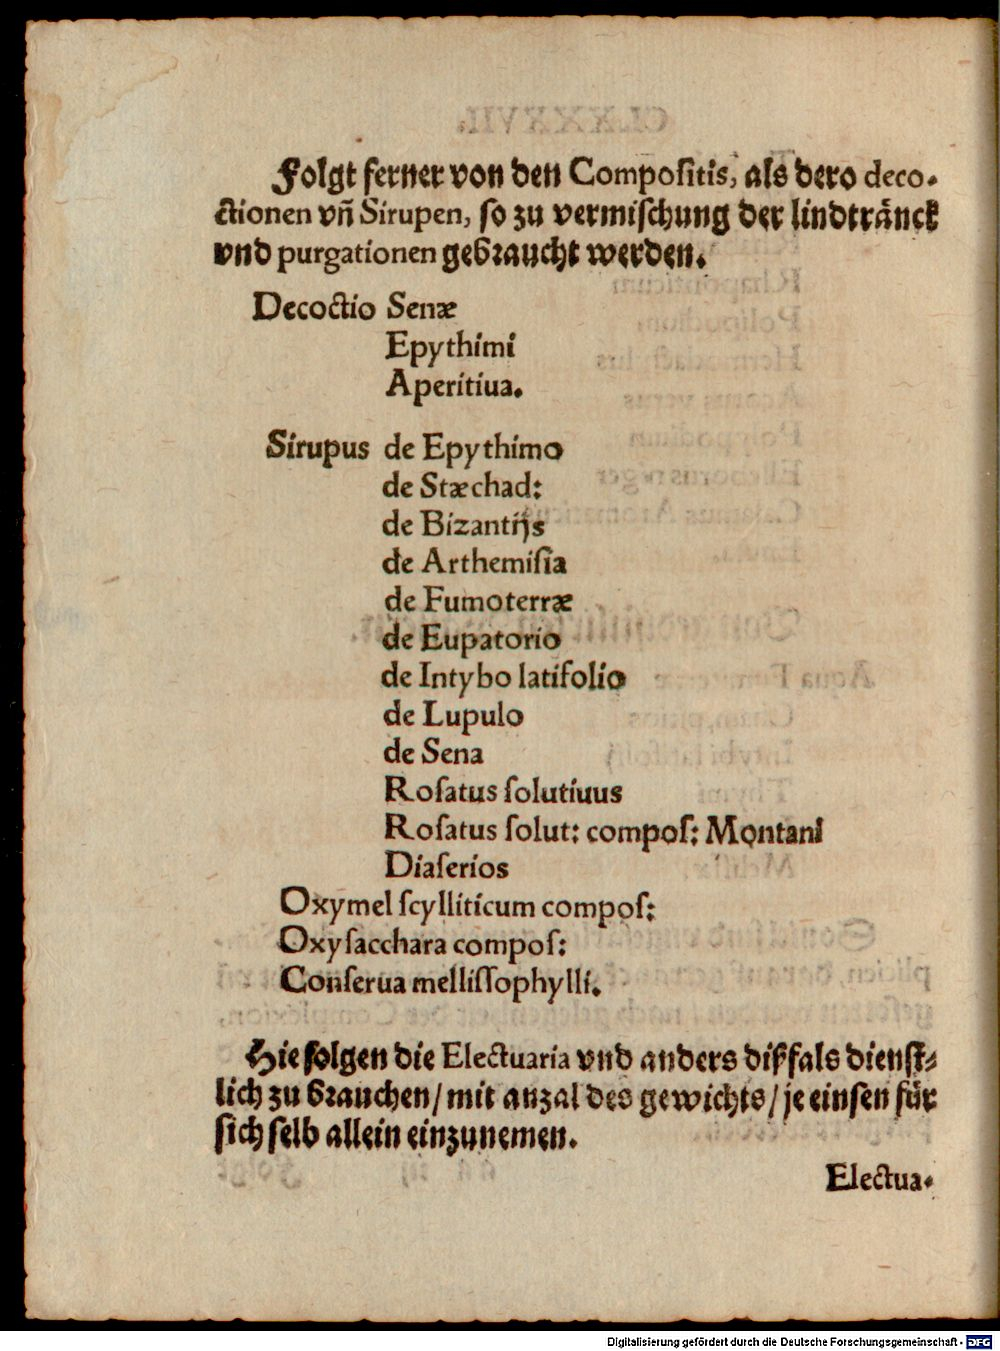 Folgt ferner von den Compoſitis, als dero deco-
ctionen vñ Sirupen, ſo zu vermiſchung der lindtränck
vnd purgationen gebraucht werden.
Decoctio Senæ
Epythimi
Aperitiua.
Sirupus de Epythimo
de Stæchad:
de Bizantijs
de Arthemiſia
de Fumoterræ
de Eupatorio
de Intybo latifolio
de Lupulo
de Sena
Roſatus ſolutiuus
Roſatus ſolut: compoſ: Montani
Diaſerios
Oxymel ſcylliticum compoſ:
Oxyſacchara compoſ:
Conſerua melliſſophylli.
Hie folgen die Electuaria vnd anders dißfals dienſt-
lich zu brauchen/ mit anzal des gewichts/ je einſen für
ſich ſelb allein einzunemen.
Electua-
Digitalisierung gefördert durch die Deutsche Forschungsgemeinschaft - DFG